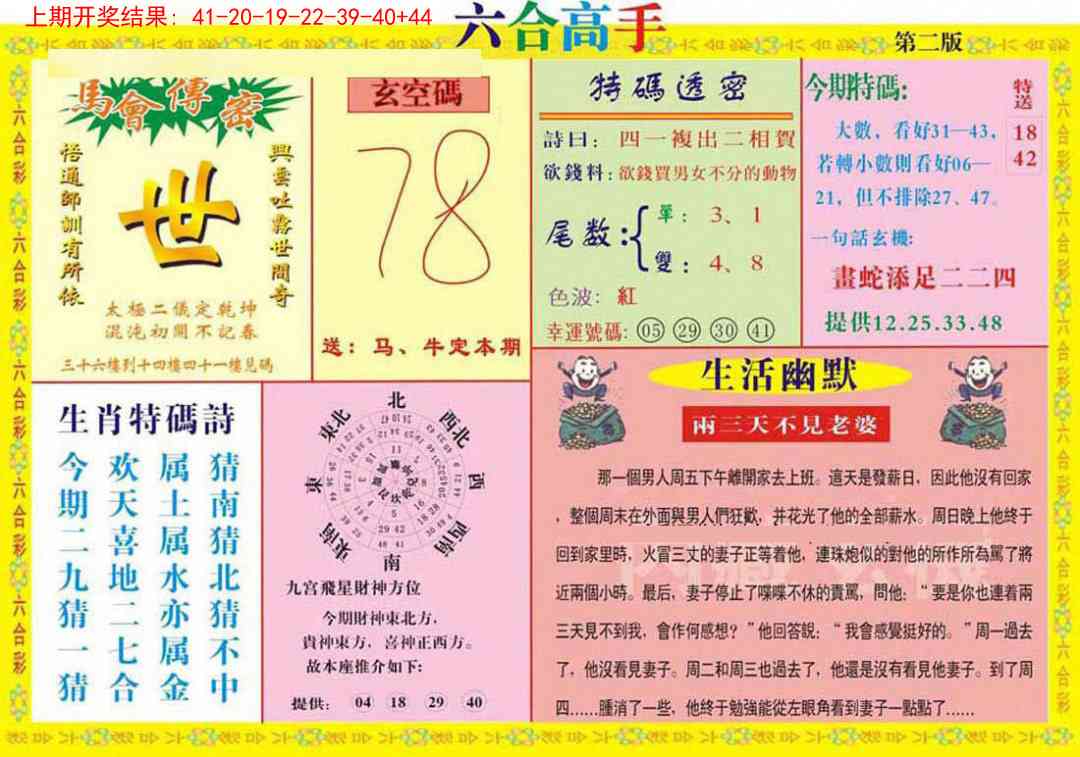 上期开奖结果: 41-20-19-22-39-40+44
六合高手
第二版
馬會傳密
悟通師訓有所依
世
興雲吐霧世間奇
太極二儀定乾坤
混沌初開不記春
三十六樓到十四樓四十一樓見碼
玄空碼
78
送：马、牛定本期
特碼透密
詩曰：四一複出二相賀
欲錢料：欲錢買男女不分的動物
尾数：
單：3、1
雙：4、8
色波：紅
幸運號碼：05 29 30 41
今期特碼:
特送
18
42
大數，看好31—43，
若轉小數則看好06—
21，但不排除27、47。
一句話玄機:
畫蛇添足二二四
提供12.25.33.48
生肖特碼詩
今欢属猜
期天土南
二喜属猜
九地水北
猜二亦猜
一七属不
猜合金中
北
東北
西北
東
西
東南
西南
南
九宫飛星財神方位
今期財神東北方，
貴神東方，喜神正西方。
故本座推介如下:
提供: 04 18 29 40
生活幽默
兩三天不見老婆
那一個男人周五下午離開家去上班。這天是發薪日，因此他沒有回家
，整個周末在外面與男人們狂歡，并花光了他的全部薪水。周日晚上他终于
回到家里時，火冒三丈的妻子正等着他，連珠炮似的對他的所作所為罵了將
近兩個小時。最后，妻子停止了喋喋不休的責罵，問他：“要是你也連着兩
三天見不到我，會作何感想？”他回答說：“我會感覺挺好的。”周一過去
了，他沒看見妻子。周二和周三也過去了，他還是沒有看見他妻子。到了周
四......腫消了一些，他终于勉強能從左眼角看到妻子一點點了......